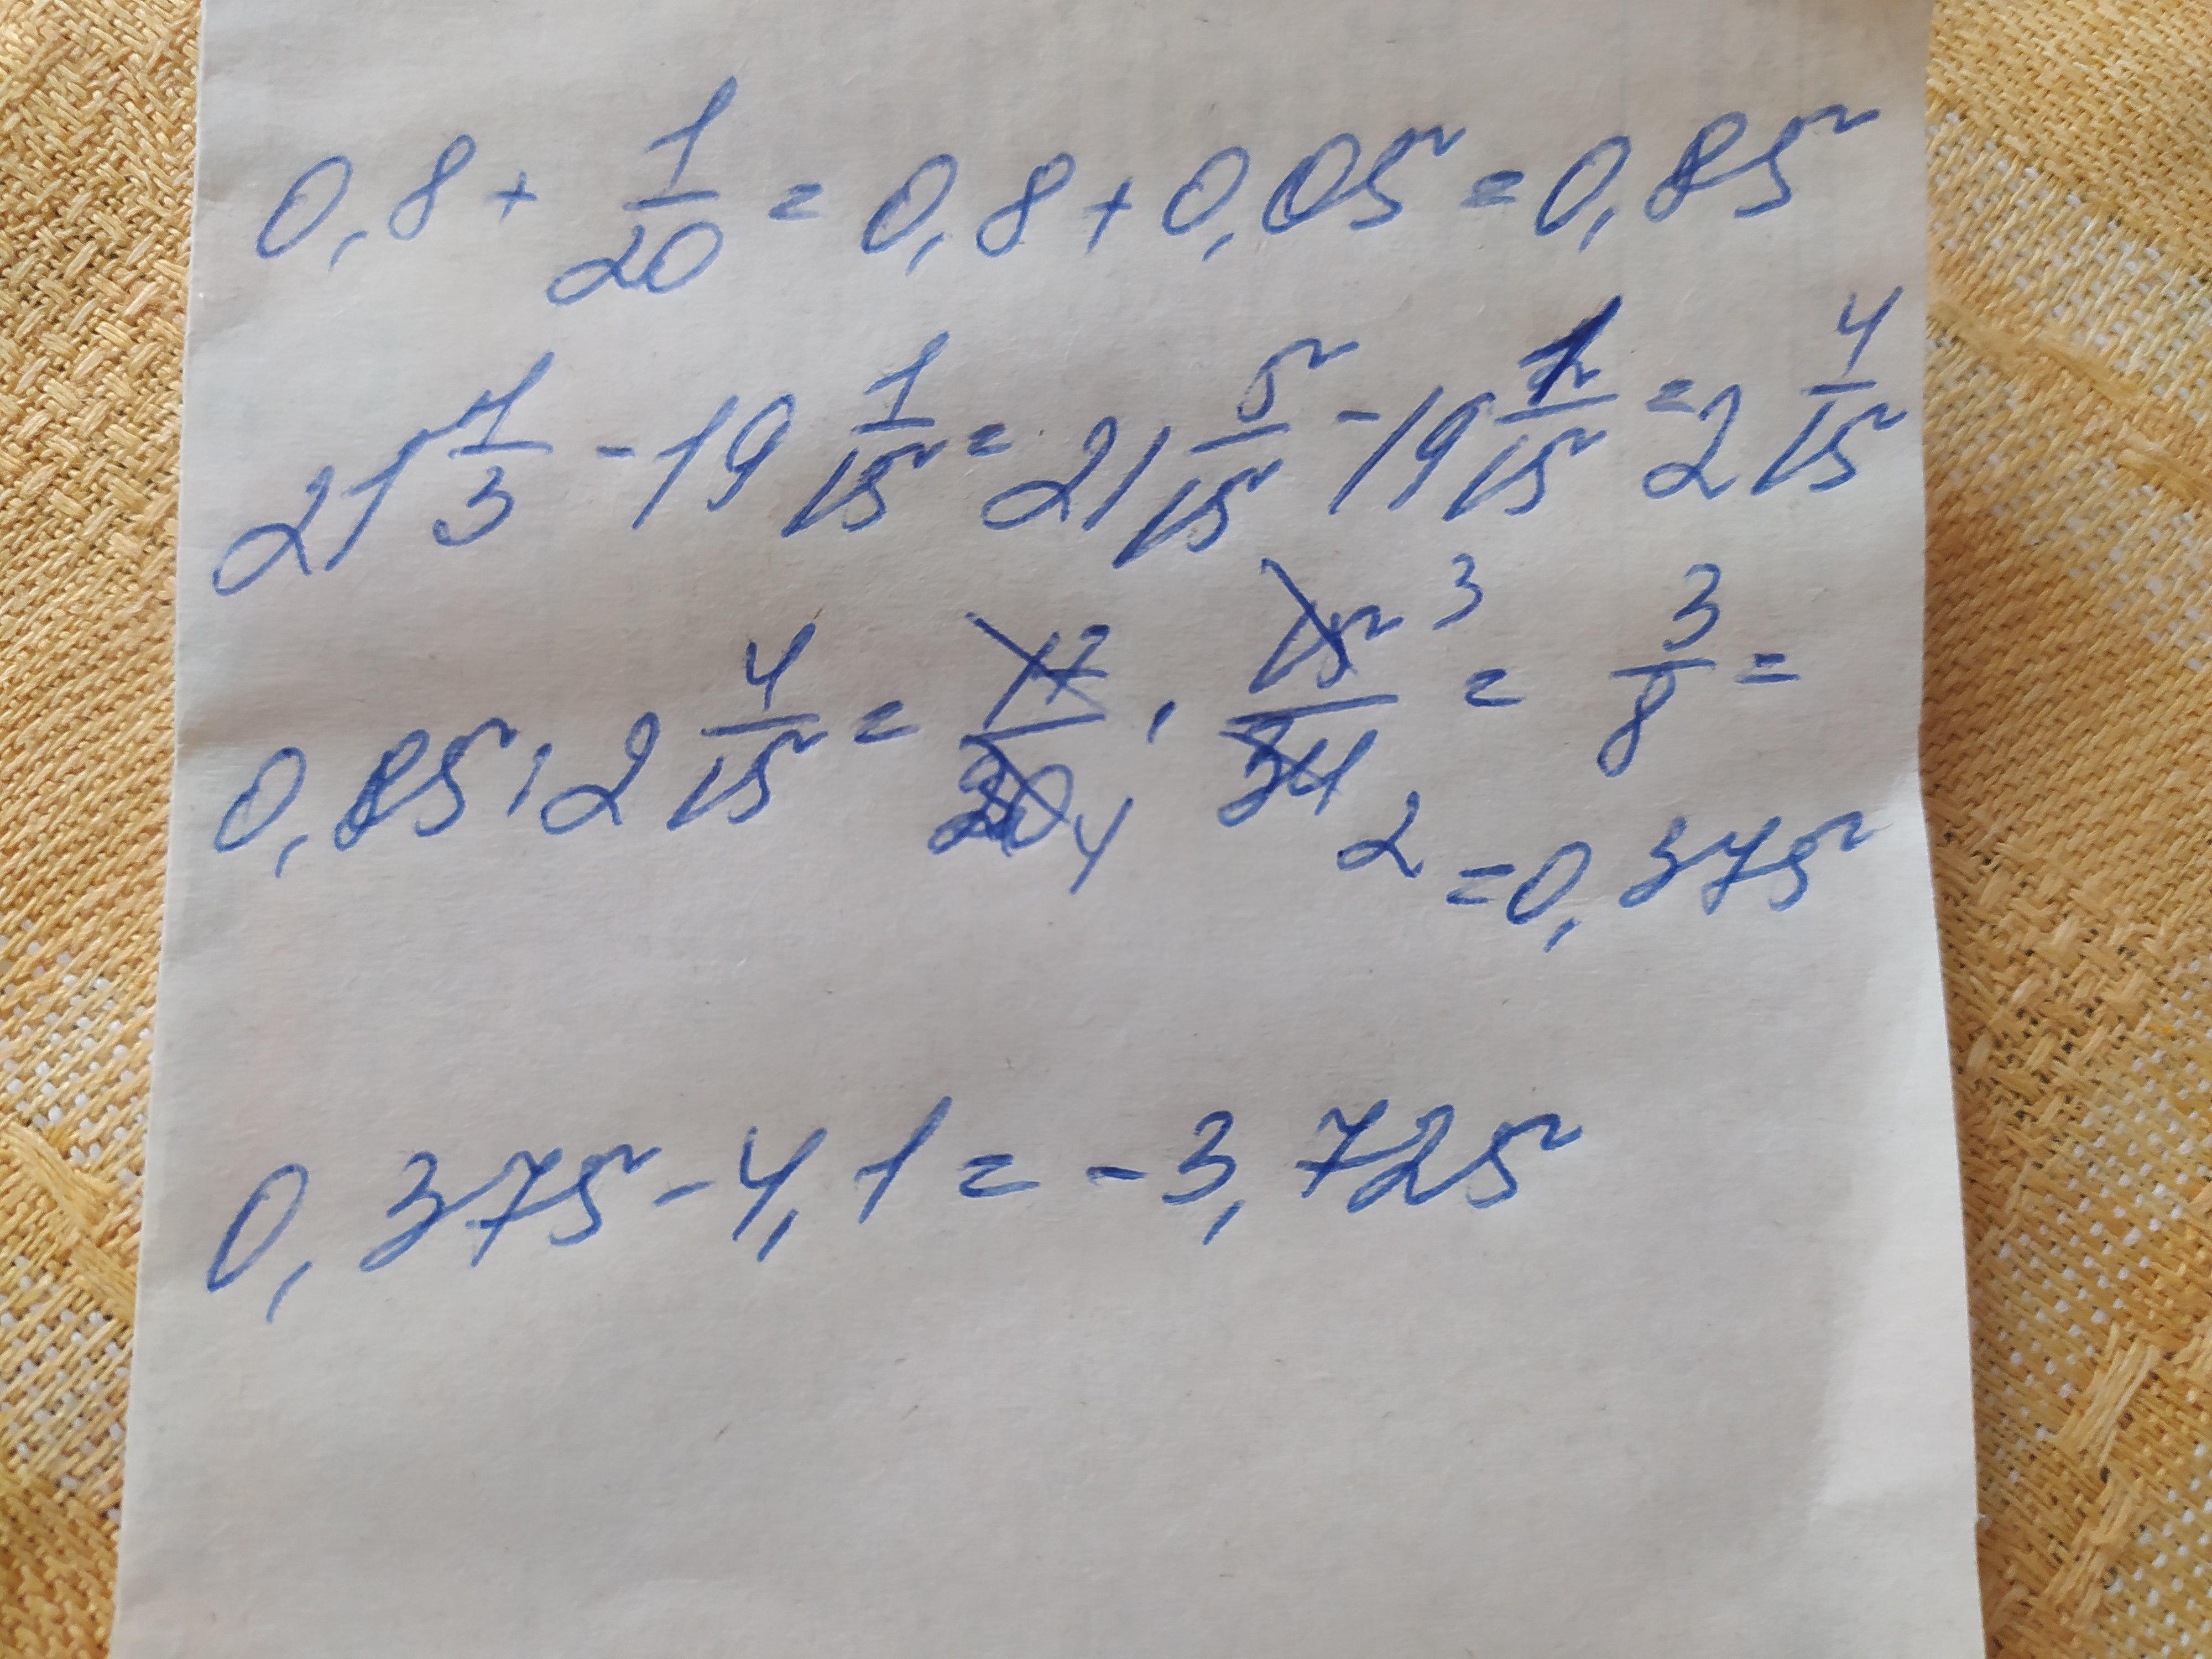 0,8 + 1/20 = 0,8 + 0,05 = 0,85
21 1/3 - 19 1/15 = 21 5/15 - 19 1/15 = 2 4/15
0,85 : 2 4/15 = 17/20 4 · 15/34 3 2 = 3/8 =
= 0,375
0,375 - 4,1 = -3,725